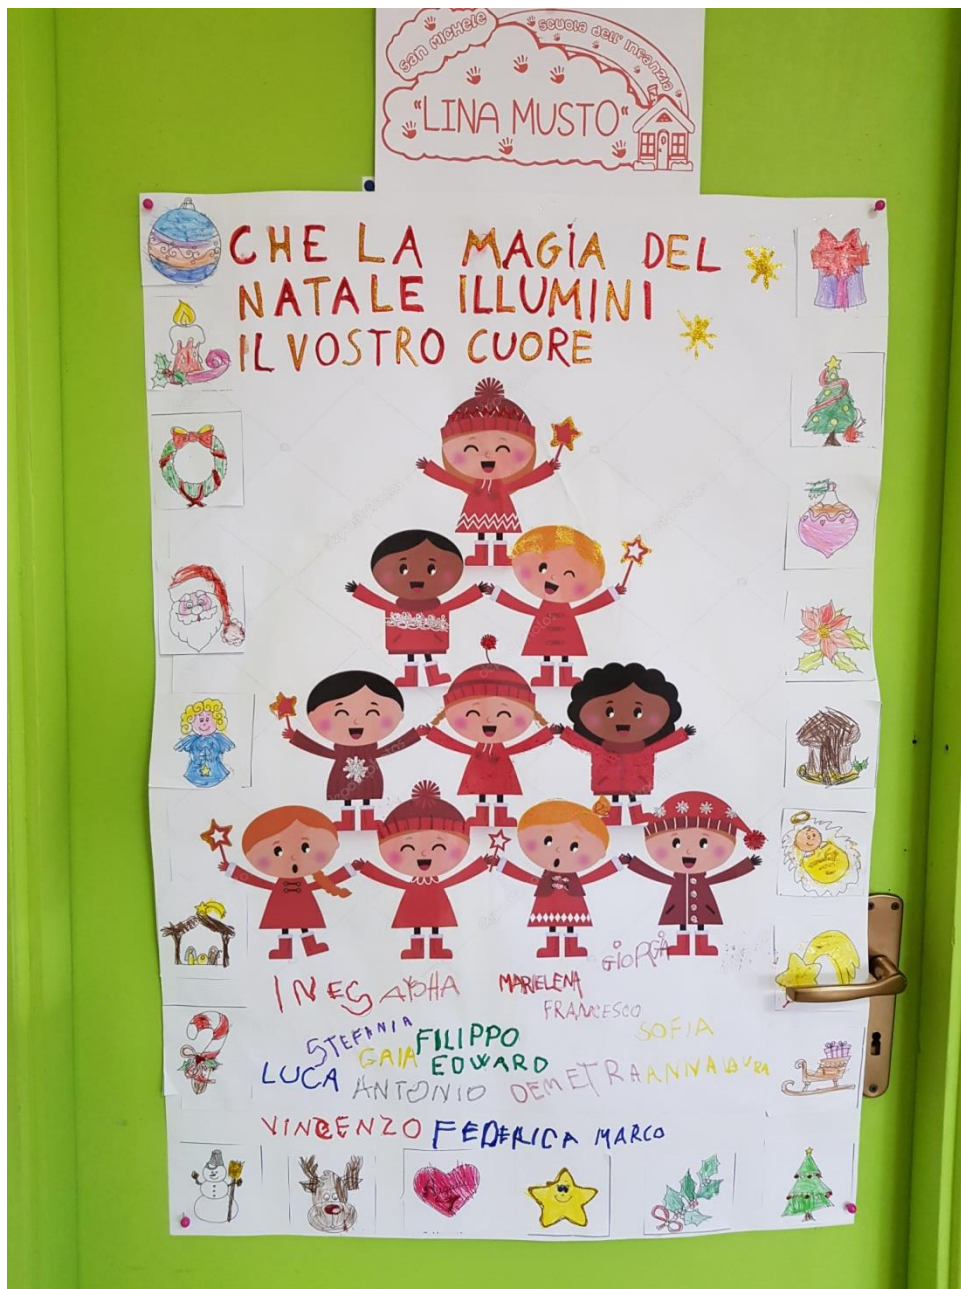 SAN MICHELE
SCUOLA dell' INFANZIA
"LINA MUSTO"
CHE LA MAGIA DEL
NATALE ILLUMINI
IL VOSTRO CUORE
GIORGIA
INES
MARIELENA
FRANCESCO
STEFANIA
FILIPPO
SOFIA
GAIA
EDWARD
LUCA
ANTONIO
DEMETRA
ANNALAURA
VINCENZO
FEDERICA
MARCO